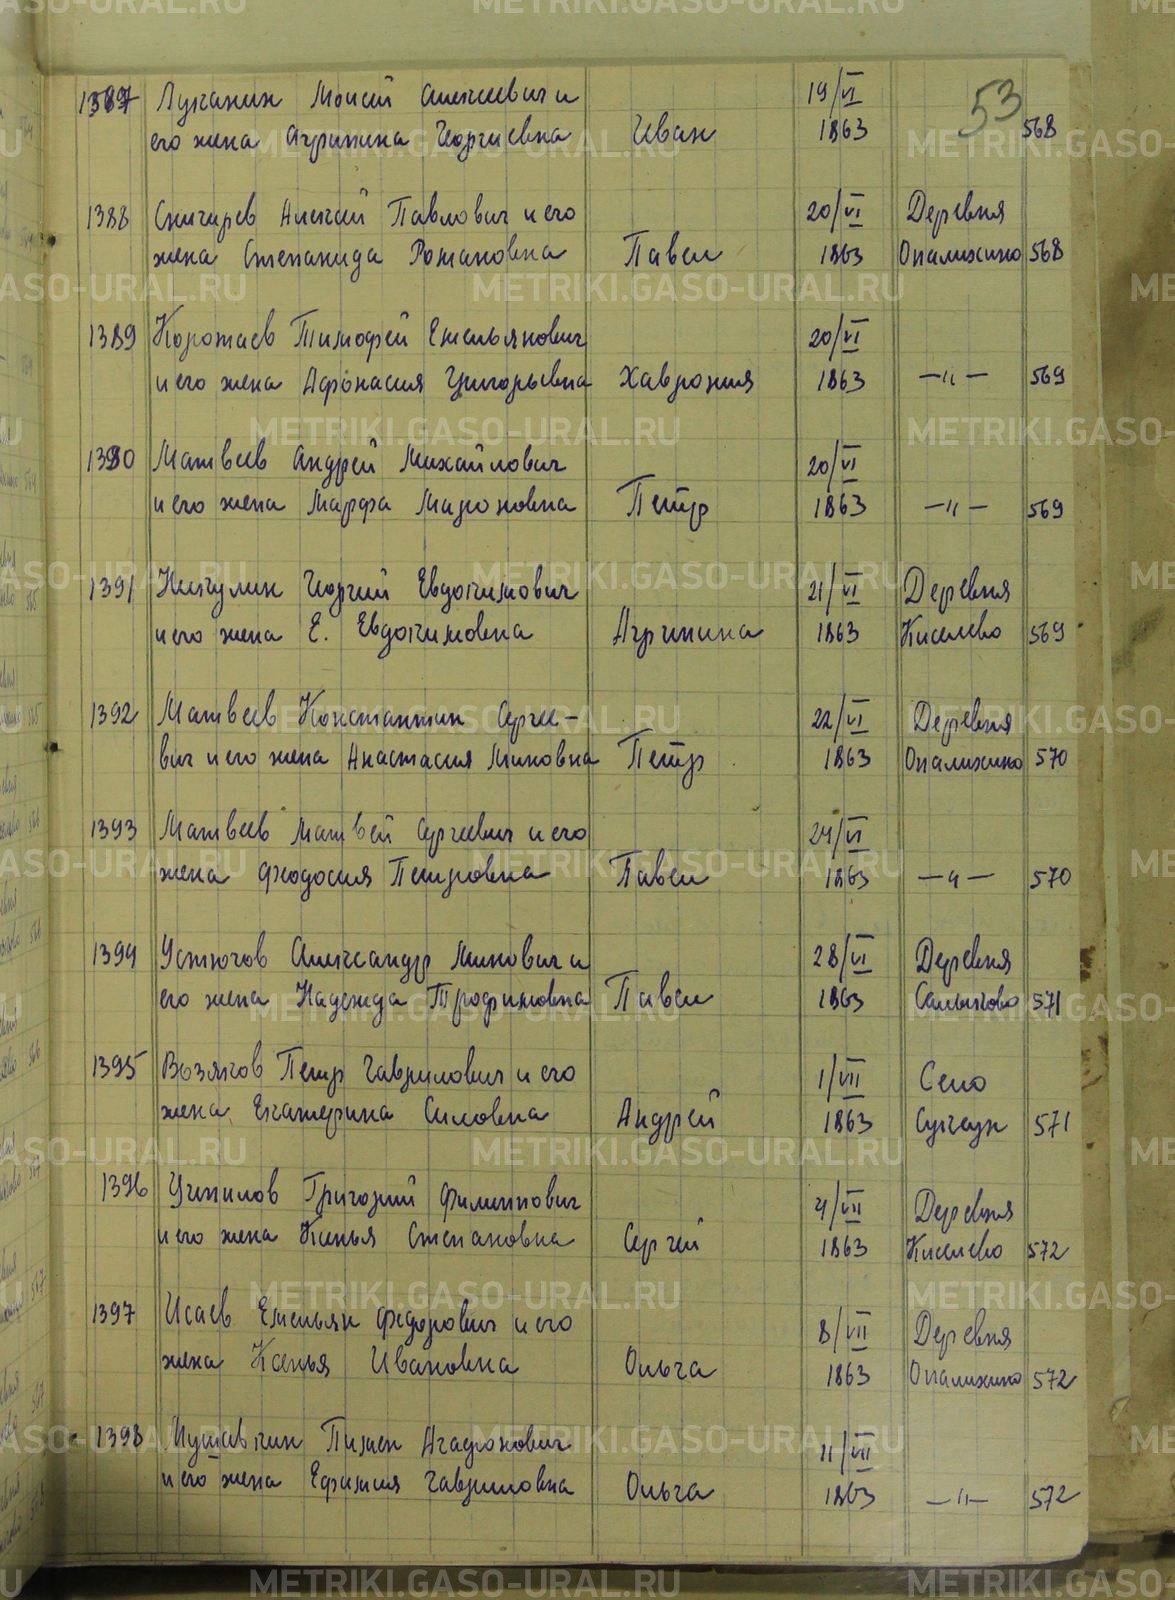 METRIKI.GASO-URAL.RU
53
1387 Лузганин Моисей Алексеевич и 19/VI
его жена Агрипина Георгиевна Иван 1863 568
1388 Снигирев Алексей Павлович и его 20/VI Деревня
жена Степанида Романовна Павел 1863 Опалихино 568
1389 Коротаев Тимофей Емельянович 20/VI
и его жена Афонасия Григорьевна Хаврония 1863 —"— 569
1390 Матвеев Андрей Михайлович 20/VI
и его жена Марфа Мироновна Петр 1863 —"— 569
1391 Георгий Евдокимович 21/VI Деревня
и его жена Е. Евдокимовна Агрипина 1863 Киселево 569
1392 Матвеев Константин Серге- 22/VI Деревня
вич и его жена Анастасия Миновна Петр 1863 Опалихино 570
1393 Матвеев Матвей Сергеевич и его 24/VI
жена Феодосия Петровна Павел 1863 —"— 570
1394 Устюгов Александр Минович и 28/VI Деревня
его жена Надежда Трофимовна Павел 1863 571
1395 Возяков Петр Гаврилович и его 1/VII Село
жена Екатерина Силовна Андрей 1863 571
1396 Григорий Филиппович 4/VII Деревня
и его жена Ксенья Степановна Сергей 1863 Киселево 572
1397 Исаев Емельян Федорович и его 8/VII Деревня
жена Ксенья Ивановна Ольга 1863 Опалихино 572
1398 Пимен Агафонович 11/VII
и его жена Ефимия Гавриловна Ольга 1863 —"— 572